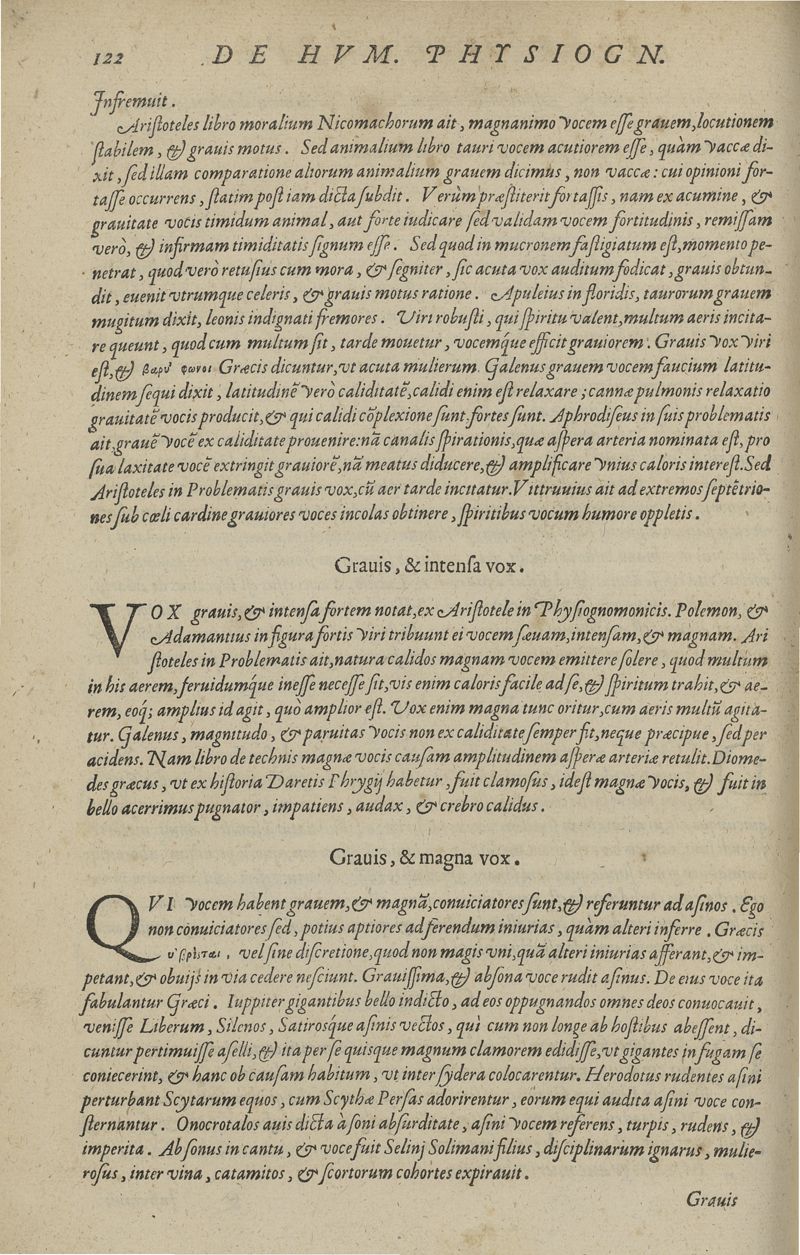 122 DE HVM. PHYSIOGN.
Infremuit.
Aristoteles libro moralium Nicomachorum ait, magnanimo vocem esse grauem, locutionem
stabilem, & grauis motus. Sed animalium libro tauri vocem acutiorem esse, quàm vaccæ di-
xit, sed illam comparatione aliorum animalium grauem dicimus, non vaccæ: cui opinioni for-
tasse occurrens, statim post iam dicta subdit. Verùm præstiterit fortassis, nam ex acumine, &
grauitate vocis timidum animal, aut forte iudicare sed validam vocem fortitudinis, remissam
verò, & infirmam timiditatis signum esse. Sed quod in mucronem fastigiatum est, momento pe-
netrat, quod verò retusius cum mora, & segniter, sic acuta vox auditum fodicat, grauis obtun-
dit, euenit vtrumque celeris, & grauis motus ratione. Apuleius in floridis, taurorum grauem
mugitum dixit, leonis indignati fremores. Viri robusti, qui spiritu valent, multum aeris incita-
re queunt, quod cum multum sit, tarde mouetur, vocemque efficit grauiorem. Grauis vox viri
est, & βαρύ φωνοι Græcis dicuntur, vt acuta mulierum. Galenus grauem vocem faucium latitu-
dinem sequi dixit, latitudinē verò caliditatē, calidi enim est relaxare; cannæ pulmonis relaxatio
grauitatē vocis producit, & qui calidi cōplexione sunt, fortes sunt. Aphrodiseus in suis problematis
ait, grauē vocē ex caliditate prouenire: nā canalis spirationis, quæ aspera arteria nominata est, pro
sua laxitate vocē extringit grauiorē, nā meatus diducere, & amplificare vnius caloris interest. Sed
Aristoteles in Problematis grauis vox, cū aer tarde incitatur. Vittruuius ait ad extremos septētrio-
nes sub cœli cardine grauiores voces incolas obtinere, spiritibus vocum humore oppletis.
Grauis, & intensa vox.
VOX grauis, & intensa fortem notat, ex Aristotele in Physiognomonicis. Polemon, &
Adamantius in figura fortis viri tribuunt ei vocem sæuam, intensam, & magnam. Ari
stoteles in Problematis ait, natura calidos magnam vocem emittere solere, quod multum
in his aerem, feruidumq́ue inesse necesse sit, vis enim caloris facile ad se, & spiritum trahit, & ae-
rem, eoq́; amplius id agit, quò amplior est. Vox enim magna tunc oritur, cum aeris multū agita-
tur. Galenus, magnitudo, & paruitas vocis non ex caliditate semper fit, neque præcipue, sed per
acidens. Nam libro de technis magnæ vocis causam amplitudinem asperæ arteriæ retulit. Diome-
des græcus, vt ex historia Daretis Phrygij habetur, fuit clamosus, idest magnæ vocis, & fuit in
bello acerrimus pugnator, impatiens, audax, & crebro calidus.
Grauis, & magna vox.
QVI vocem habent grauem, & magnā, conuiciatores sunt, & referuntur ad asinos. Ego
non conuiciatores sed, potius aptiores ad ferendum iniurias, quàm alteri inferre. Græcis
ὑβρίσται, vel sine discretione, quod non magis vni, quā alteri iniurias afferant, & im-
petant, & obuijs in via cedere nesciunt. Grauissima, & absona voce rudit asinus. De eius voce ita
fabulantur Græci. Iuppiter gigantibus bello indicto, ad eos oppugnandos omnes deos conuocauit,
venisse Liberum, Silenos, Satirosq́ue asinis vectos, quì cum non longe ab hostibus abessent, di-
cuntur pertimuisse aselli, & ita per se quisque magnum clamorem edidisse, vt gigantes in fugam se
coniecerint, & hanc ob causam habitum, vt inter sydera colocarentur. Herodotus rudentes asini
perturbant Scytarum equos, cum Scythæ Persas adorirentur, eorum equi audita asini voce con-
sternantur. Onocrotalos auis dicta à soni absurditate, asini vocem referens, turpis, rudens, &
imperita. Absonus in cantu, & voce fuit Selinj Solimani filius, disciplinarum ignarus, mulie-
rosus, inter vina, catamitos, & scortorum cohortes expirauit.
Grauis